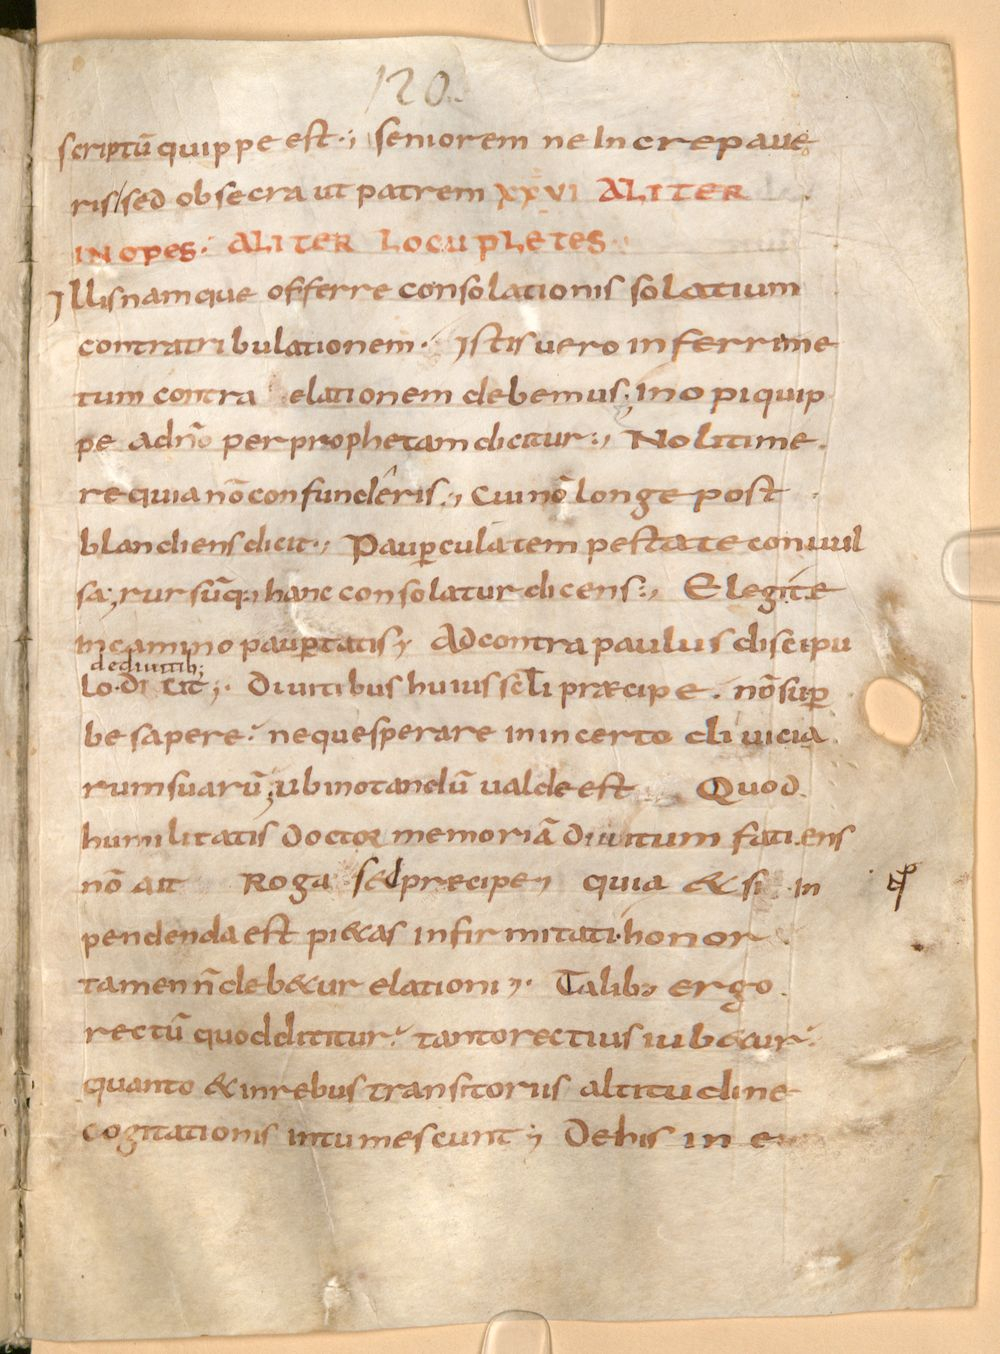 120.
scriptū quippe est·; seniorem ne Increpaue
ris/sed obsecra ut patrem XXVI ALITER
INOPES· ALITER LOCUPLETES·
Illis namque offerre consolationis solatium
contra tribulationem· Istis uero inferre me
tum contra elationem debemus; inopi quip
pe adn̄o per prophetam dicitur·, Noli time.
re quia nō confunderis·, Cui nō longe post
blandiens dicit·, Paupcula tempestate conuul
sa; rursūq; hanc consolatur dicens:, Elegi te
in camino paupertatis; Ad contra paulus discipu
de diuitib;
lo·di cit;· Diuitibus huius scłi præcipe· nō sup
be sapere· neque sperare in incerto diuicia
rum suarū; ubi notandū ualde est Quod
humilitatis doctor memoriā diuitum fatiens
nō ait Roga sed præcipe; quia & si in
pendenda est pi&as infirmitati· honor
tamen n̄ deb&ur elationi;· Talib; ergo
rectū quod dititur· tanto rectius iub&ur·
quanto & in rebus transitoriis altitudine
cogitationis intumescunt; De his in